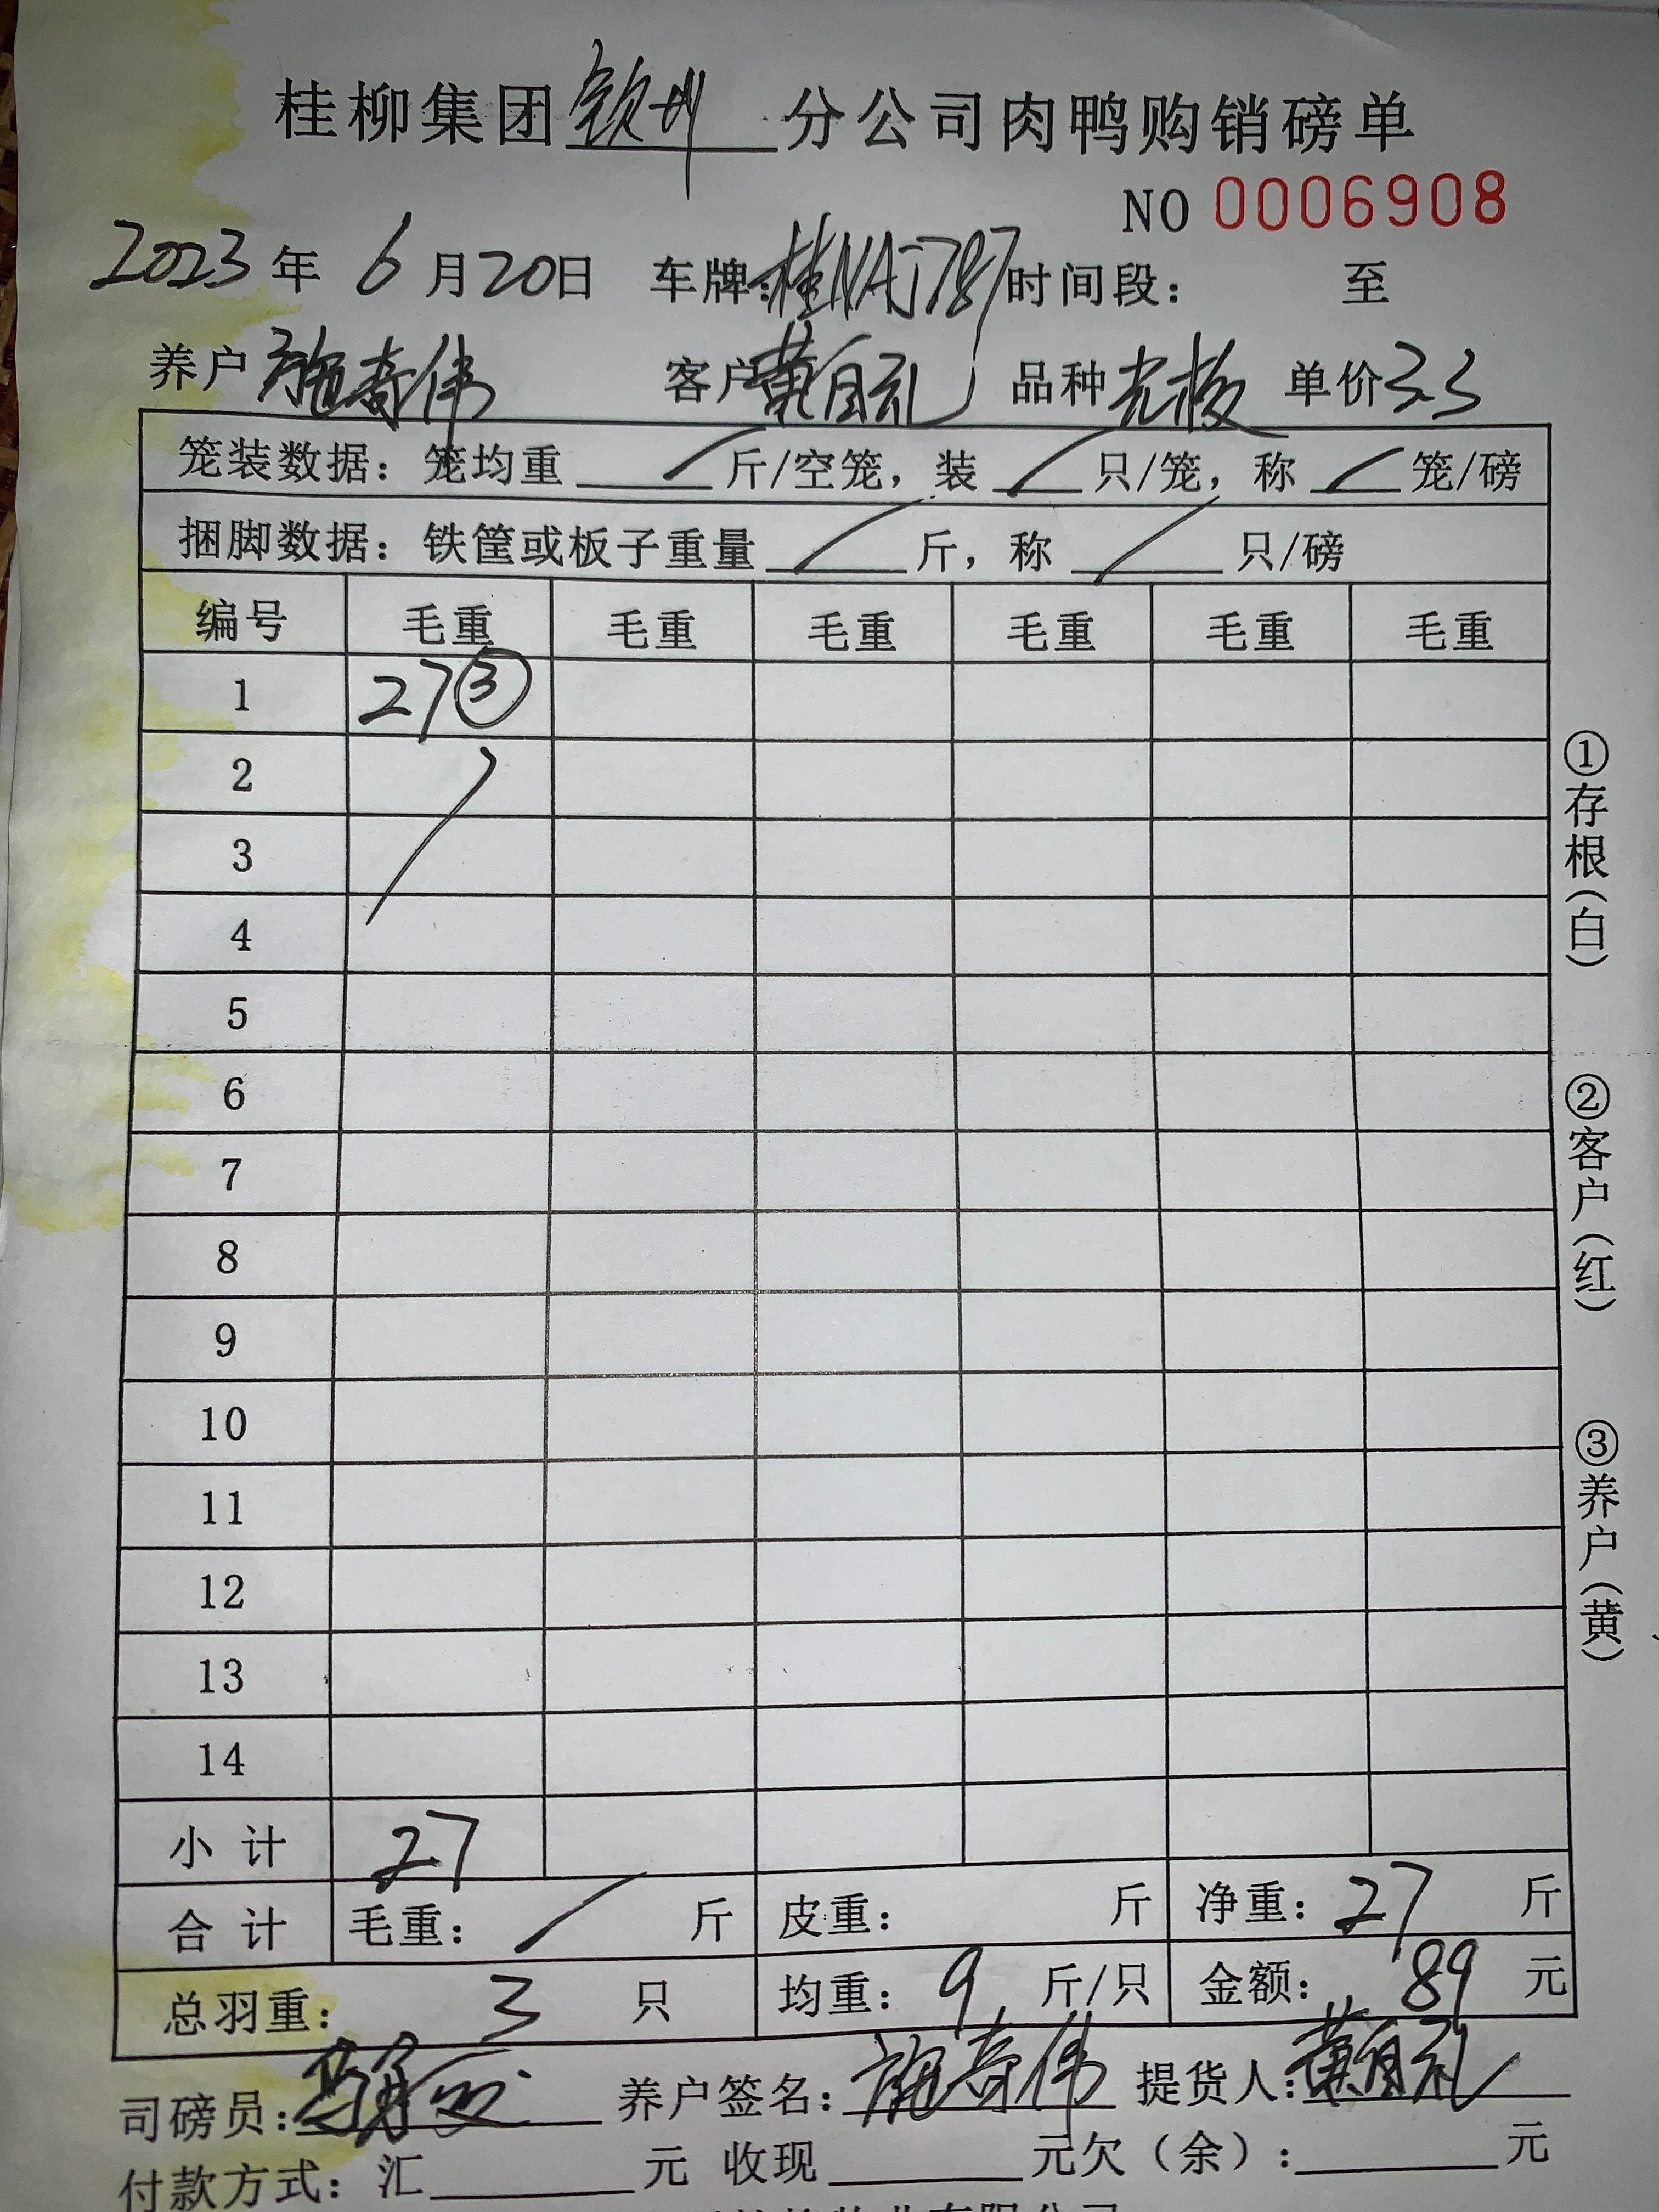 桂柳集团钦州分公司肉鸭购销磅单
NO 0006908
2023年6月20日 车牌:桂NAJ787 时间段: 至
养户 施奇伟 客户 黄自礼 品种 单价3.3
笼装数据: 笼均重 斤/空笼, 装 只/笼, 称 笼/磅
捆脚数据: 铁筐或板子重量 斤, 称 只/磅
编号 毛重 毛重 毛重 毛重 毛重 毛重
1 27③
2
3
4
5
6
7
8
9
10
11
12
13
14
小计 27
合计 毛重: 斤 皮重: 斤 净重: 27 斤
总羽重: 3 只 均重: 9 斤/只 金额: 89 元
司磅员: 养户签名: 施奇伟 提货人: 黄自礼
付款方式: 汇 元 收现 元 欠(余): 元
①存根(白)
②客户(红)
③养户(黄)